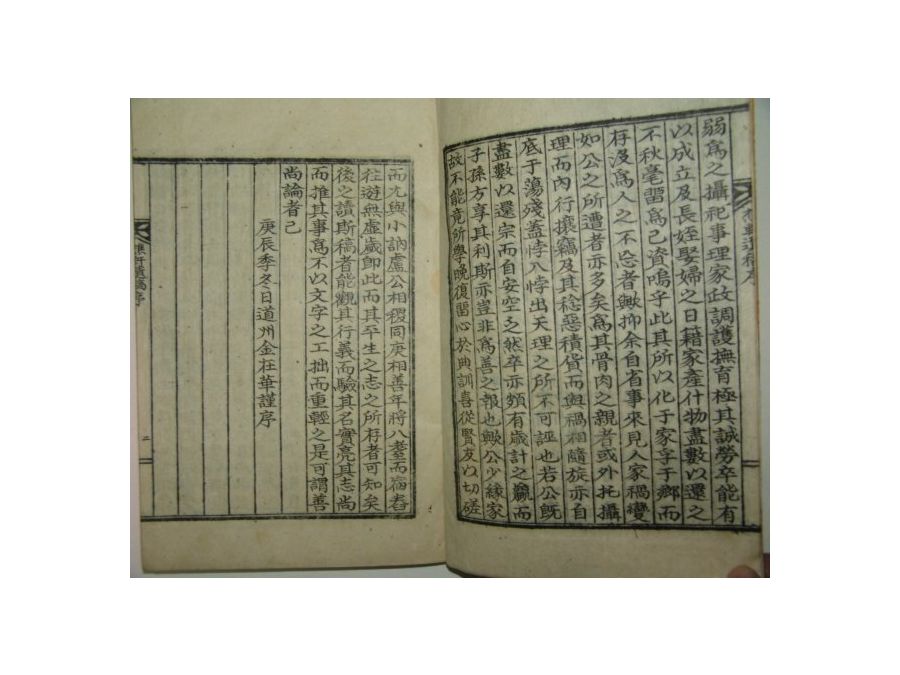 弱爲之攝祀事理家政調護撫育極其誠勞卒能有
以成立及長姪娶婦之日籍家產什物盡數以還之
不秋毫留爲己資嗚乎此其所以化于家孚于鄕而
存沒爲人之不忘者歟抑余自省事來見人家禍變
如公之所遭者亦多矣爲其骨肉之親者或外托攝
理而內行攘竊及其稔惡積貨而與禍相隨旋亦自
底于蕩殘蓋悖入悖出天理之所不可誣也若公旣
盡數以還宗而自安空乏然卒亦頗有歲計之贏而
子孫方享其利斯亦豈非爲善之報也歟公少緣家
故不能竟所學晩復留心於典訓喜從賢友以切磋
而尤與小訥盧公相稷同庚相善年將八耋而宿舂
往遊無虛歲卽此而其平生之志之所存者可知矣
後之讀斯稿者能觀其行義而驗其名實亮其志尙
而推其事爲不以文字之工拙而重輕之是可謂善
尙論者已
庚辰季冬日道州金在華謹序
遺稿序
二